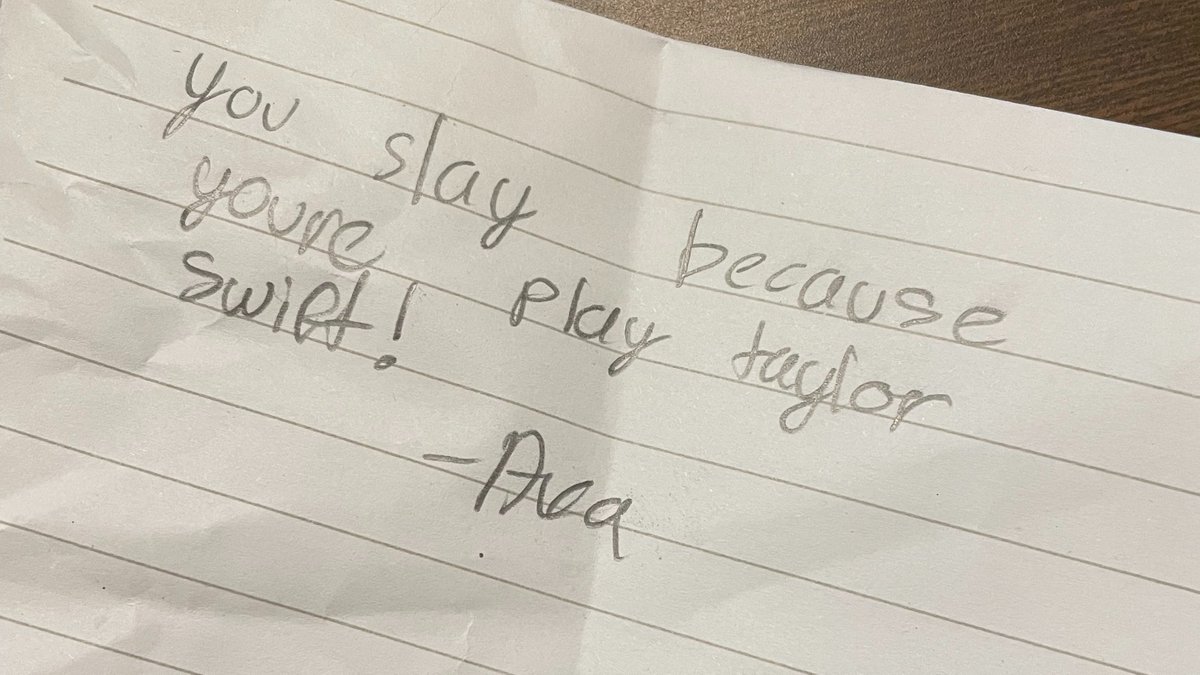 you slay because
youre play taylor
swift!